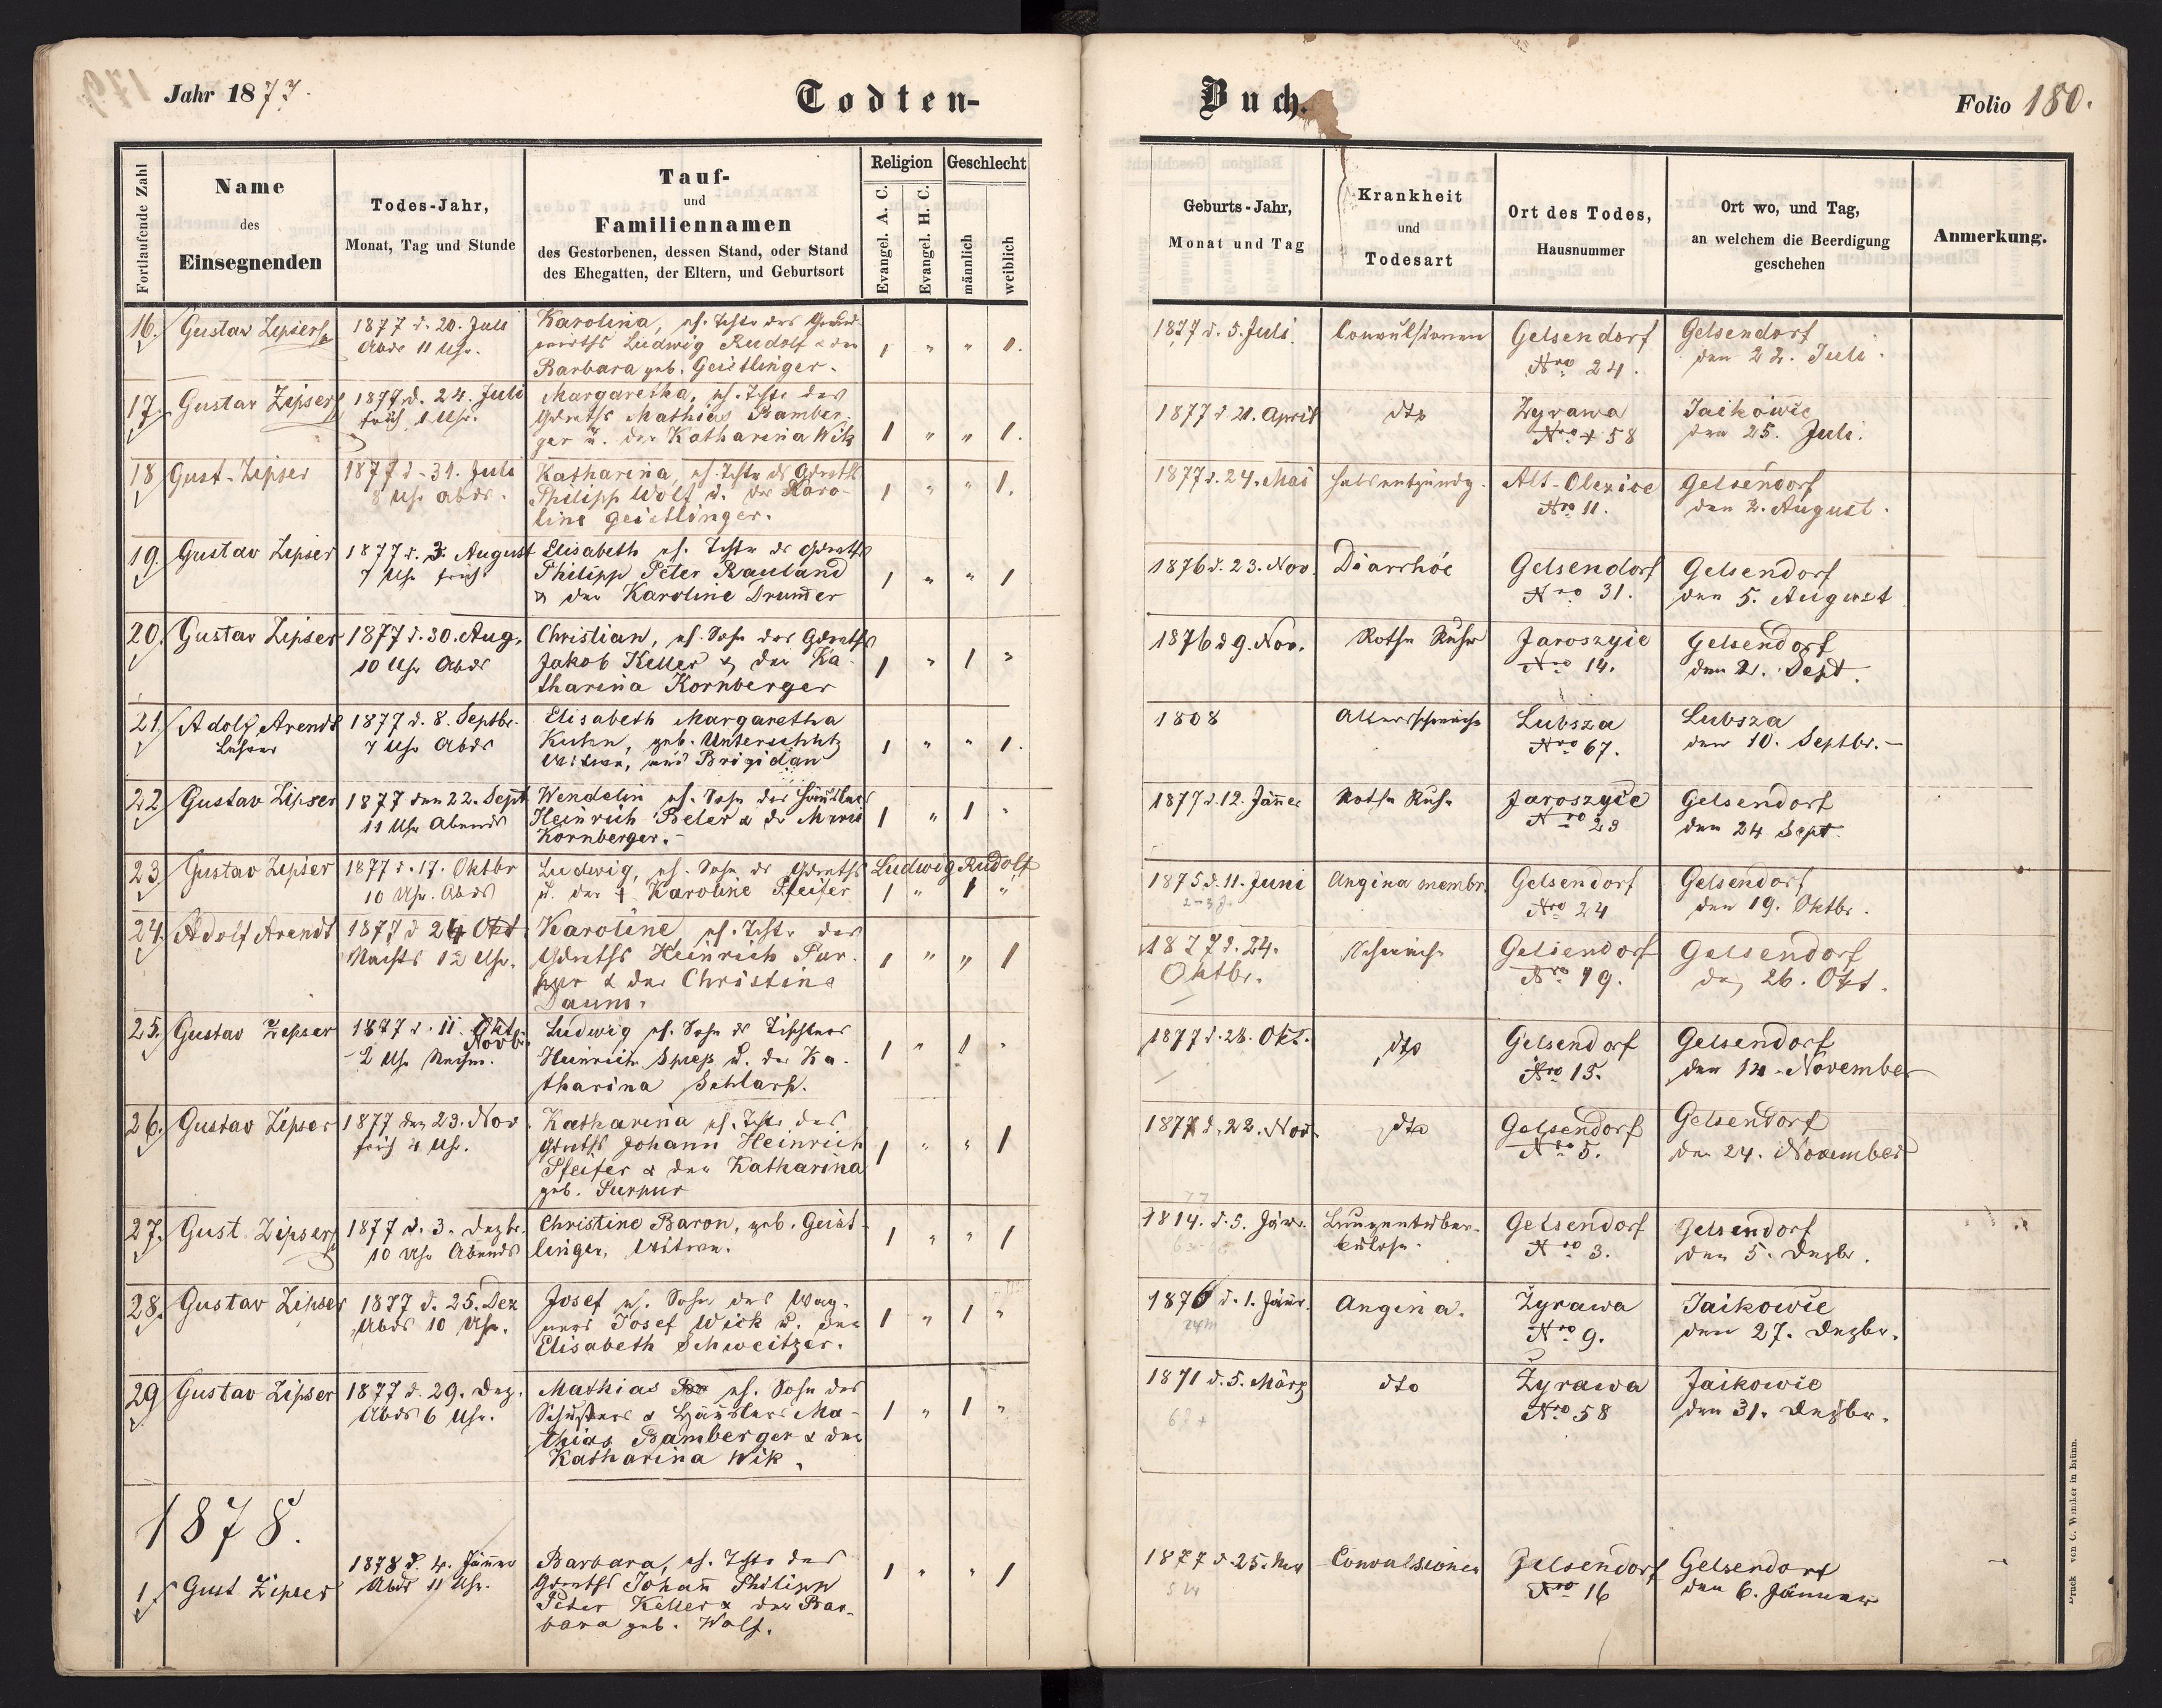 Jahr 1877.
Todten-
Buch.
Folio 180.
Fortlaufende Zahl
Name
des
Einsegnenden
Todes-Jahr,
Monat, Tag und Stunde
Tauf-
und
Familiennamen
des Gestorbenen, dessen Stand, oder Stand
des Ehegatten, der Eltern, und Geburtsort
Religion
Evangel. A. C.
Evangel. H. C.
Geschlecht
männlich
weiblich
Geburts-Jahr,
Monat und Tag
Krankheit
und
Todesart
Ort des Todes,
Hausnummer
Ort wo, und Tag,
an welchem die Beerdigung
geschehen
Anmerkung.
16. Gustav Zipser
1877 d. 20. Juli
Abds 11 Uhr.
Karolina, eh. Tochter des Grund-
wirths Ludwig Rudolf & der
Barbara geb. Geistlinger.
1 " " 1.
1877 d. 5. Juli.
Convulsionen
Gelsendorf
Nro 24.
Gelsendorf
den 22. Juli.
17. Gustav Zipser
1877 d. 24. Juli
früh 1 Uhr.
Margaretha, eh. Tochter des
Gdwrths Mathias Bamber-
ger u. der Katharina Wik
1 " " 1.
1877 d 21. April
dto
Zyrawa
Nro 58
Jaikowie
den 25. Juli.
18 Gust. Zipser
1877 d. 31. Juli
8 Uhr abds.
Katharina, eh. Tochter ds Gdwrths
Philipp Wolf u. der Karo-
line Geistlinger.
1 " " 1.
1877 d. 24. Mai
Halsentzündg.
Alt-Olexice
Nro 11.
Gelsendorf
den 2. August.
19. Gustav Zipser
1877 d. 3. August
7 Uhr früh
Elisabeth eh. Tochter ds Gdwrths
Philipp Peter Rauland
& der Karoline Drumer
1 " " 1
1876 d. 23. Nov.
Diarrhöe
Gelsendorf
Nro 31.
Gelsendorf
den 5. August
20. Gustav Zipser
1877 d. 30. Aug.
10 Uhr Abds
Christian, eh. Sohn des Gdwrths
Jakob Keller & der Ka-
tharina Kornberger
1 " 1 "
1876 d 9. Nov.
Rothe Ruhr
Jaroszyie
Nro 14.
Gelsendorf
den 2. Sept.
21. Adolf Arendt
Lehrer
1877 d. 8. Septbr.
7 Uhr Abds
Elisabeth Margaretha
Kuhn, geb. Unterschütz
Witwe, aus Brigidau
1 " " 1.
1808
Altersschwäche
Lubsza
Nro 67.
Lubsza
den 10. Septbr.
22 Gustav Zipser
1877 den 22. Sept
11 Uhr Abends
Wendelin eh. Sohn des Häuslers
Heinrich Beler & der Maria
Kornberger.
1 " 1 "
1877 d. 12. Jänner
Rothe Ruhr
Jaroszyie
Nro 23
Gelsendorf
den 24 Sept.
23 Gustav Zipser
1877 d. 17. Oktbr
10 Uhr. Abds
Ludwig, eh. Sohn ds Gdwrths Ludwig Rudolf
u. der † Karoline Pfeifer
1 " 1 "
1875 d. 11. Juni
Angina membr.
Gelsendorf
Nro 24
Gelsendorf
den 19. Oktbr.
24. Adolf Arendt
1877 d 24 Okt
Nachts 12 Uhr.
Karoline, eh. Tochter des
Gdwrths Heinrich Pur-
pur & der Christina
Daum.
1 " " 1
1877 d. 24.
Oktbr.
Schwäche
Gelsendorf
Nro 19.
Gelsendorf
den 26. Okt.
25. Gustav Zipser
1877 d. 11. Okt.
Novb.
2 Uhr Nachm.
Ludwig eh. Sohn ds Tischlers
Heinrich Spieß u. der Ka-
tharina Schlarp.
1 " 1 "
1877 d. 28. Okt.
dto
Gelsendorf
Nro 15.
Gelsendorf
den 12. November
26. Gustav Zipser
1877 den 23. Nov.
früh 4 Uhr.
Katharina eh. Tochter des
Gdwrths Johann Heinrich
Pfeifer & der Katharina
geb. Purpur
1 " " 1
1877 d. 22. Nov.
dto
Gelsendorf
Nro 5.
Gelsendorf
den 24. November
27. Gust. Zipser
1877 d. 3. Dezbr.
10 Uhr Abends
Christine Baron, geb. Geist-
linger, Witwe.
1 " " 1
1814. d. 5. Jänr.
Lungentuber-
kulose.
Gelsendorf
Nro 3.
Gelsendorf
den 5. Dezbr.
28. Gustav Zipser
1877 d. 25. Dez
Abds 10 Uhr.
Josef eh. Sohn des Wag-
ners Josef Wick u. der
Elisabeth Schweitzer.
1 " 1 "
1876 d. 1. Jänr.
24m
Angina.
Zyrawa
Nro 9.
Jaikowie
den 27. Dezbr.
29 Gustav Zipser
1877 d. 29. Dez.
Abds 6 Uhr.
Mathias eh. Sohn des
Schusters & Häuslers Ma-
thias Bamberger & der
Katharina Wik.
1 " 1 "
1871 d. 5. März
dto
Zyrawa
Nro 58
Jaikowie
den 31. Dezbr.
1878.
1. Gust Zipser
1878 d. 4. Jänner
Abds 11 Uhr.
Barbara, eh. Tochter des
Gdwrths Johann Philipp
Peter Keller & der Bar-
bara geb. Wolf.
1 " " 1
1877 d. 25. Nov
Convulsionen
Gelsendorf
Nro 16
Gelsendorf
den 6. Jänner
Druck von C. Winiker in Brünn.